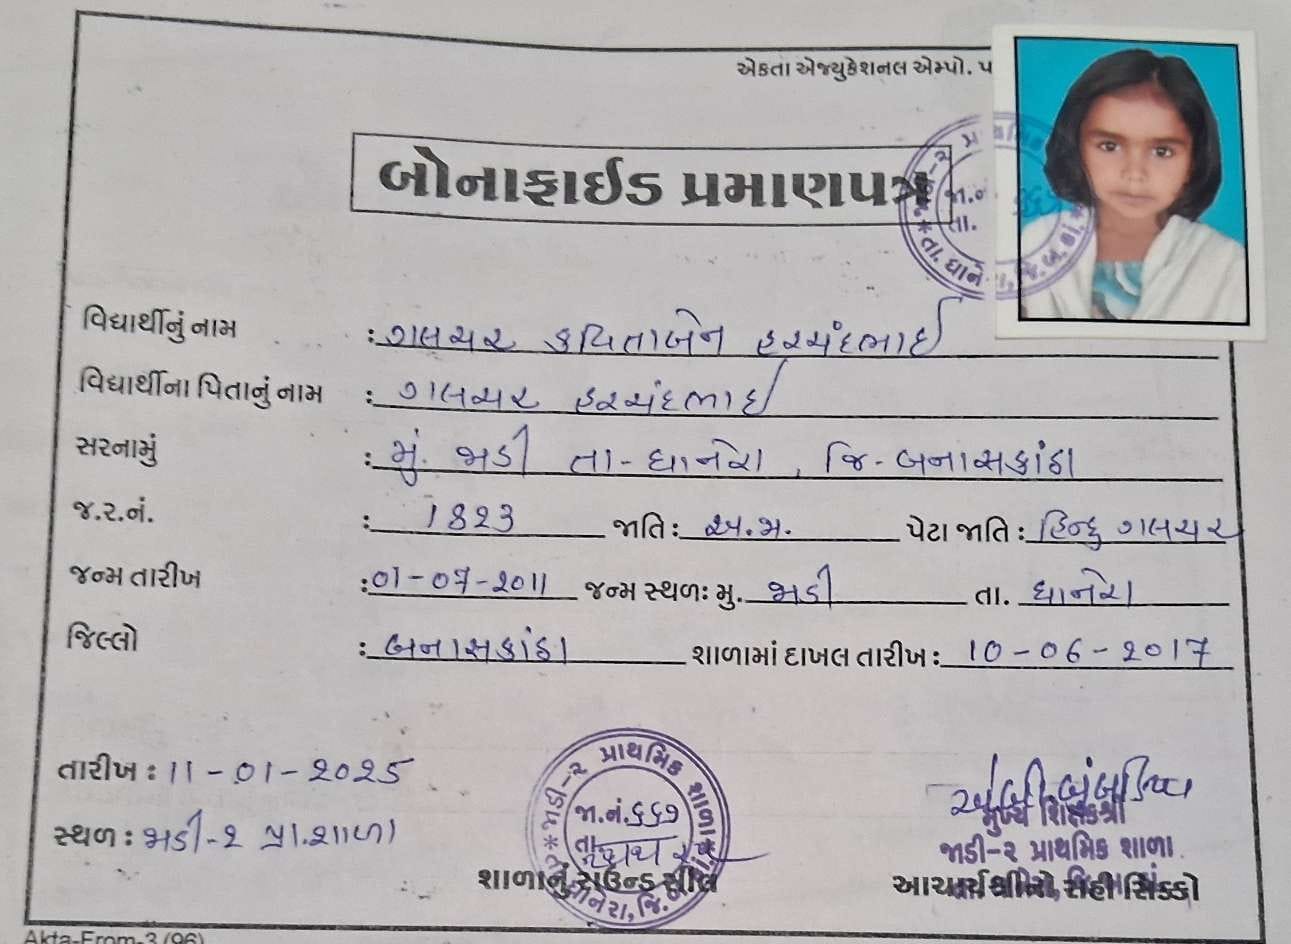 એકતા એજ્યુકેશનલ એમ્પો. પ
બોનાફાઈડ પ્રમાણપત્ર
વિદ્યાર્થીનું નામ : ગલચર કવિતાબેન હરચંદભાઈ
વિદ્યાર્થીના પિતાનું નામ : ગલચર હરચંદભાઈ
સરનામું : મું. ભડી તા-ધાનેરા, જિ-બનાસકાંઠા
જ.ર.નં. : 1823 જાતિ : અ.જ. પેટા જાતિ : હિન્દુ ગલચર
જન્મ તારીખ : 01-07-2011 જન્મ સ્થળ: મુ. ભડી તા. ધાનેરા
જિલ્લો : બનાસકાંઠા શાળામાં દાખલ તારીખ : 10-06-2017
તારીખ : 11-01-2025
સ્થળ : ભડી-2 પ્રા.શાળા
પ્રાથમિક શાળા
જા.નં.૬૬૭
તા.
શાળાનું રાઉન્ડ સીલ
મુખ્ય શિક્ષકશ્રી
જાડી-૨ પ્રાથમિક શાળા
આચાર્યશ્રીનો સહી સિક્કો
Akta-From-3 (96)